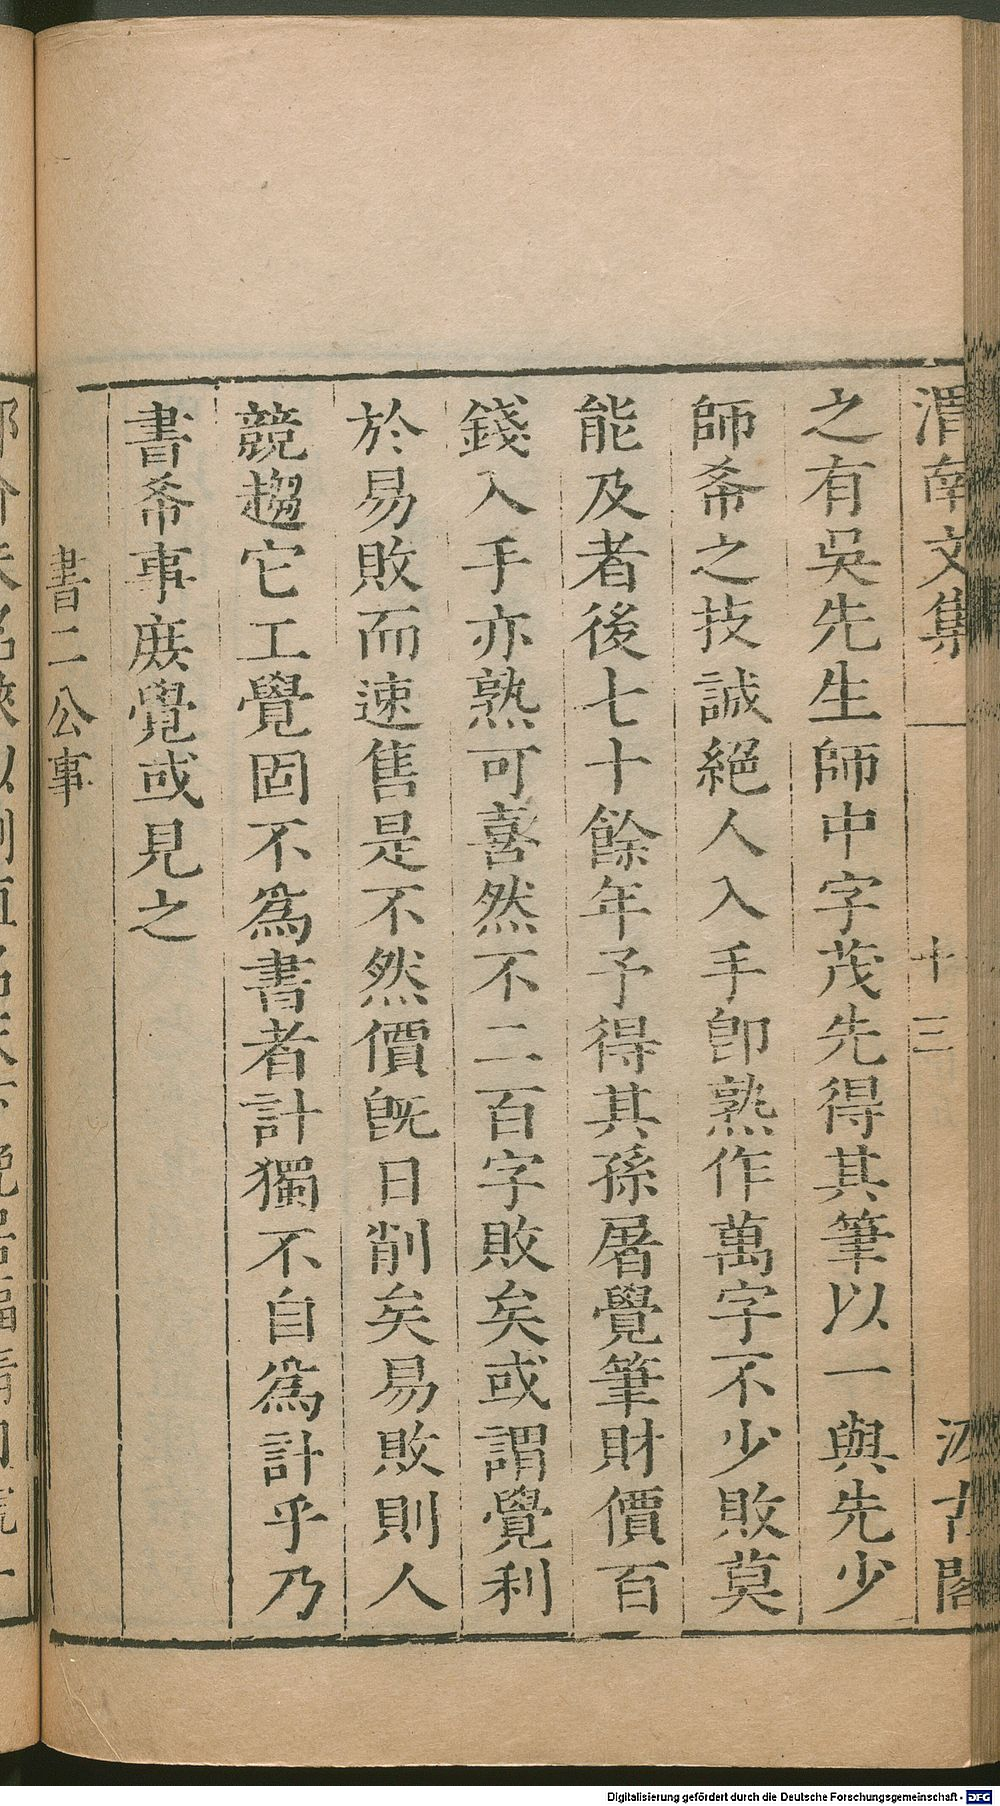 渭南文集
十三
汲古閣
之有吳先生師中字茂先得其筆以一與先少
師希之技誠絕人入手卽熟作萬字不少敗莫
能及者後七十餘年予得其孫屠覺筆財價百
錢入手亦熟可喜然不二百字敗矣或謂覺利
於易敗而速售是不然價旣日削矣易敗則人
競趨它工覺固不爲書者計獨不自爲計乎乃
書希事庻覺或見之
書二公事
Digitalisierung gefördert durch die Deutsche Forschungsgemeinschaft - DFG